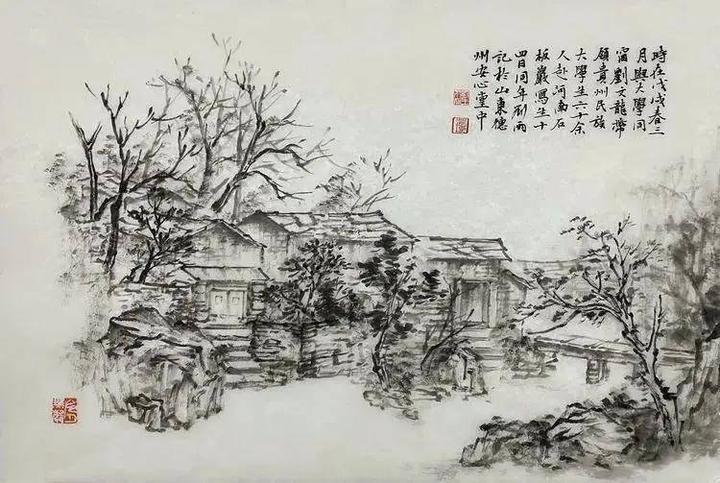 時在戊戌春三
月與大學同
窗劉文龍帶
領貴州民族
大學生六十余
人赴河南石
板巖寫生十
四日同年劉雨
記於山東德
州安心堂中